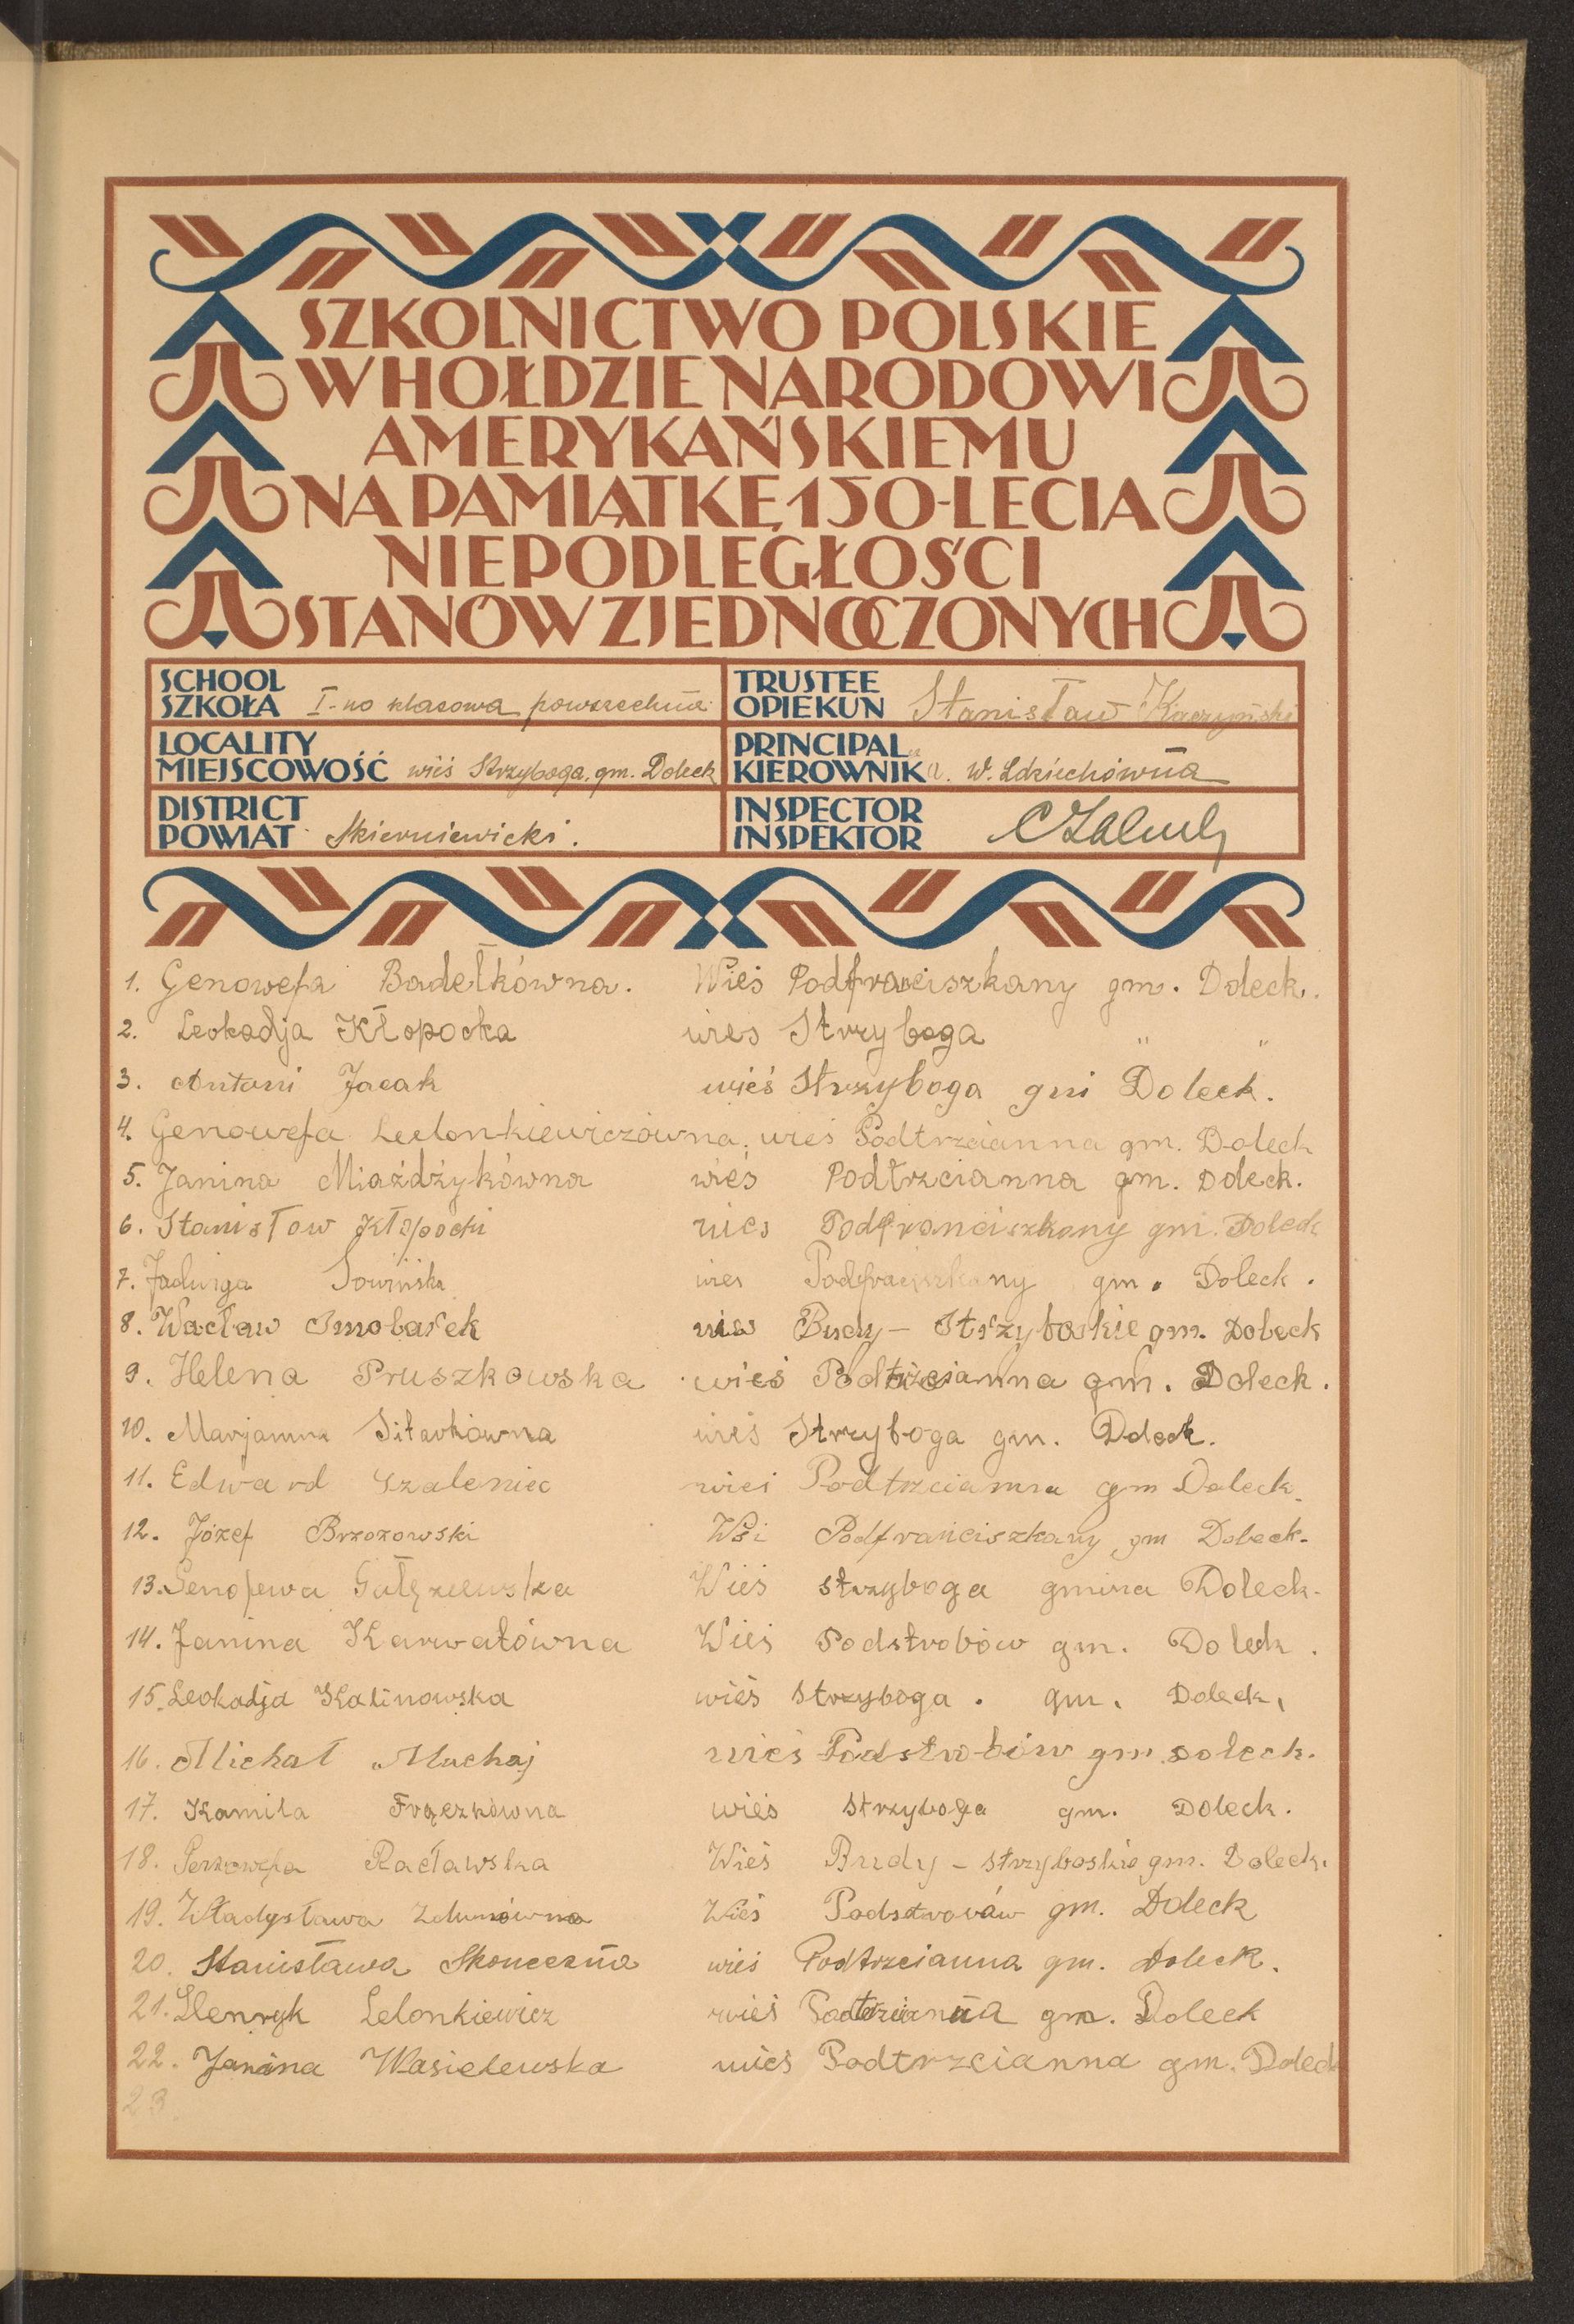 SZKOLNICTWO POLSKIE
W HOŁDZIE NARODOWI
AMERYKAŃSKIEMU
NA PAMIĄTKĘ 150-LECIA
NIEPODLEGŁOŚCI
STANÓW ZJEDNOCZONYCH
SCHOOL
SZKOŁA I-no klasowa powszechna
TRUSTEE
OPIEKUN Stanisław Kaczyński
LOCALITY
MIEJSCOWOŚĆ wieś Strzyboga, gm. Doleck
PRINCIPAL
KIEROWNIK W. Zdziechówna
DISTRICT
POWIAT Skierniewicki.
INSPECTOR
INSPEKTOR
1. Genowefa Badełkówna. Wieś Podfranciszkany gm. Doleck.
2. Leokadja Kłopocka wies Strzyboga " "
3. Antoni Jacak wieś Strzyboga gm Doleck.
4. Genowefa Leelonkiewiczówna, wieś Podtrzcianna gm. Doleck
5. Janina Miażdżykówna wieś Podtrzcianna gm. Doleck.
6. Stanisław Kłopocki wies Podfranciszkany gm. Doleck
7. Jadwiga Sowińska wies Podfraciszkany gm. Doleck.
8. Wacław Smolarek wies Budy - Strzyboskie gm. Doleck
9. Helena Pruszkowska wieś Podtrzcianna gm. Doleck.
10. Marjanna Sitarkówna wieś Strzyboga gm. Doleck.
11. Edward Szaleniec wieś Podtrzcianna gm Doleck.
12. Józef Brzozowski Wsi Podfranciszkany gm Doleck.
13. Genofewa Gałęzewska Wieś strzyboga gmina Doleck.
14. Janina Karwatówna Wieś Podstrobów gm. Doleck.
15. Leokadja Kalinowska wieś Strzyboga. gm. Doleck,
16. Michał Machaj wieś Podstrobów gm. Doleck.
17. Kamila Frączkówna wieś Strzyboga gm. Doleck.
18. Genowefa Racławska Wieś Budy - strzyboskie gm. Doleck.
19. Władysława Zdunówna Wieś gm. Doleck
20. Stanisława Skoneczna wieś Podtrzcianna gm. Doleck.
21. Henryk Lelonkiewicz wieś Podtrzcianna gm. Doleck
22. Janina Wasielewska wieś Podtrzcianna gm. Doleck
23.